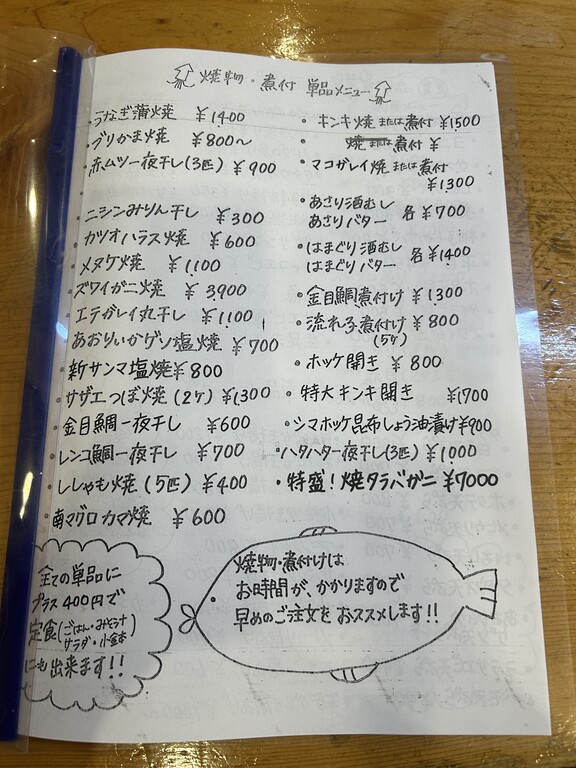 焼物・煮付 単品メニュー
・うなぎ蒲焼 ¥1400
・ブリかま焼 ¥800〜
・赤ムツ一夜干し(3匹) ¥900
・ニシンみりん干し ¥300
・カツオハラス焼 ¥600
・メヌケ焼 ¥1,100
・ズワイガニ焼 ¥3,900
・エテガレイ丸干し ¥1,100
・あおりいかゲソ塩焼 ¥700
・新サンマ塩焼 ¥800
・サザエつぼ焼(2ケ) ¥1300
・金目鯛一夜干し ¥600
・レンコ鯛一夜干し ¥700
・ししゃも焼(5匹) ¥400
・南マグロカマ焼 ¥600
・キンキ焼または煮付 ¥1500
・焼または煮付 ¥
・マコガレイ焼または煮付
¥1300
・あさり酒むし
あさりバター 各¥700
・はまぐり酒むし
はまぐりバター 各¥1400
・金目鯛煮付け ¥1300
・流れ子煮付け ¥800
(5ケ)
・ホッケ開き ¥800
・特大キンキ開き ¥1700
・シマホッケ昆布しょう油漬け¥900
・ハタハタ一夜干し(3匹) ¥1000
・特盛!焼タラバガニ ¥7000
全ての単品に
プラス400円で
定食(ごはん・みそ汁
サラダ・小鉢
にも出来ます!!
焼物・煮付けは
お時間が、かかりますので
早めのご注文をおススメします!!